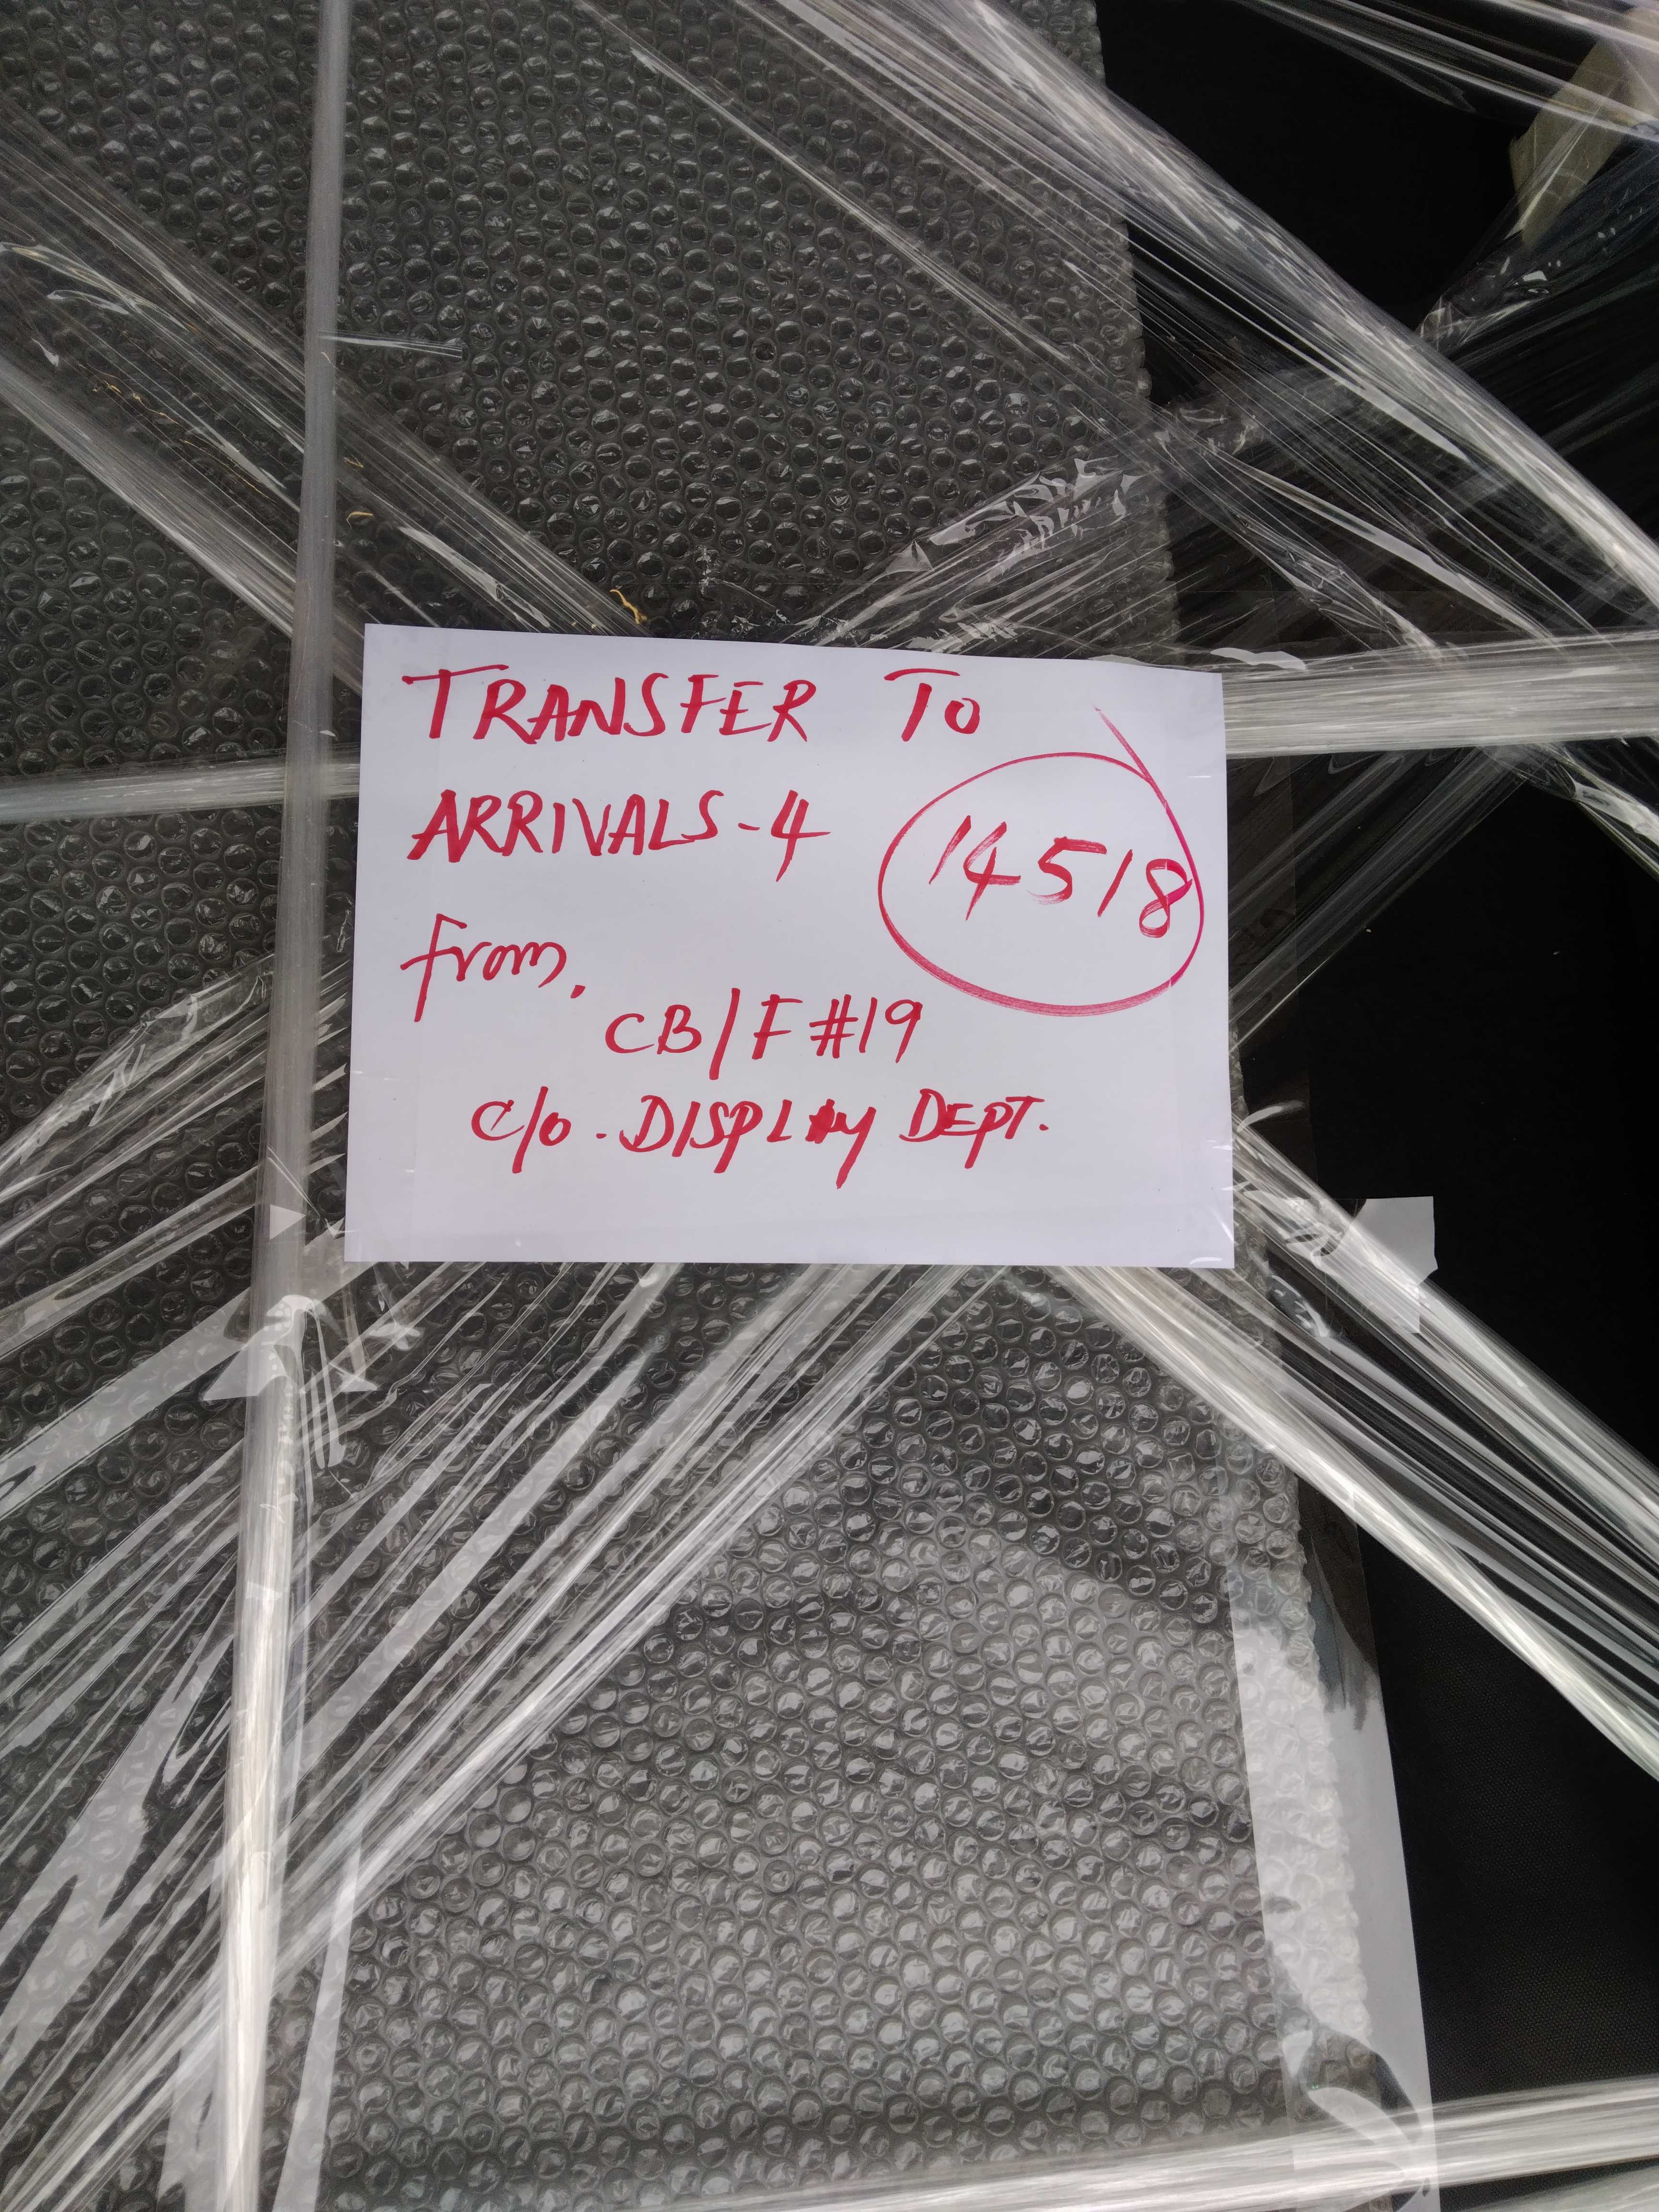 TRANSFER TO
ARRIVALS-4
14518
from,
CB/F #19
c/o. DISPLAY DEPT.